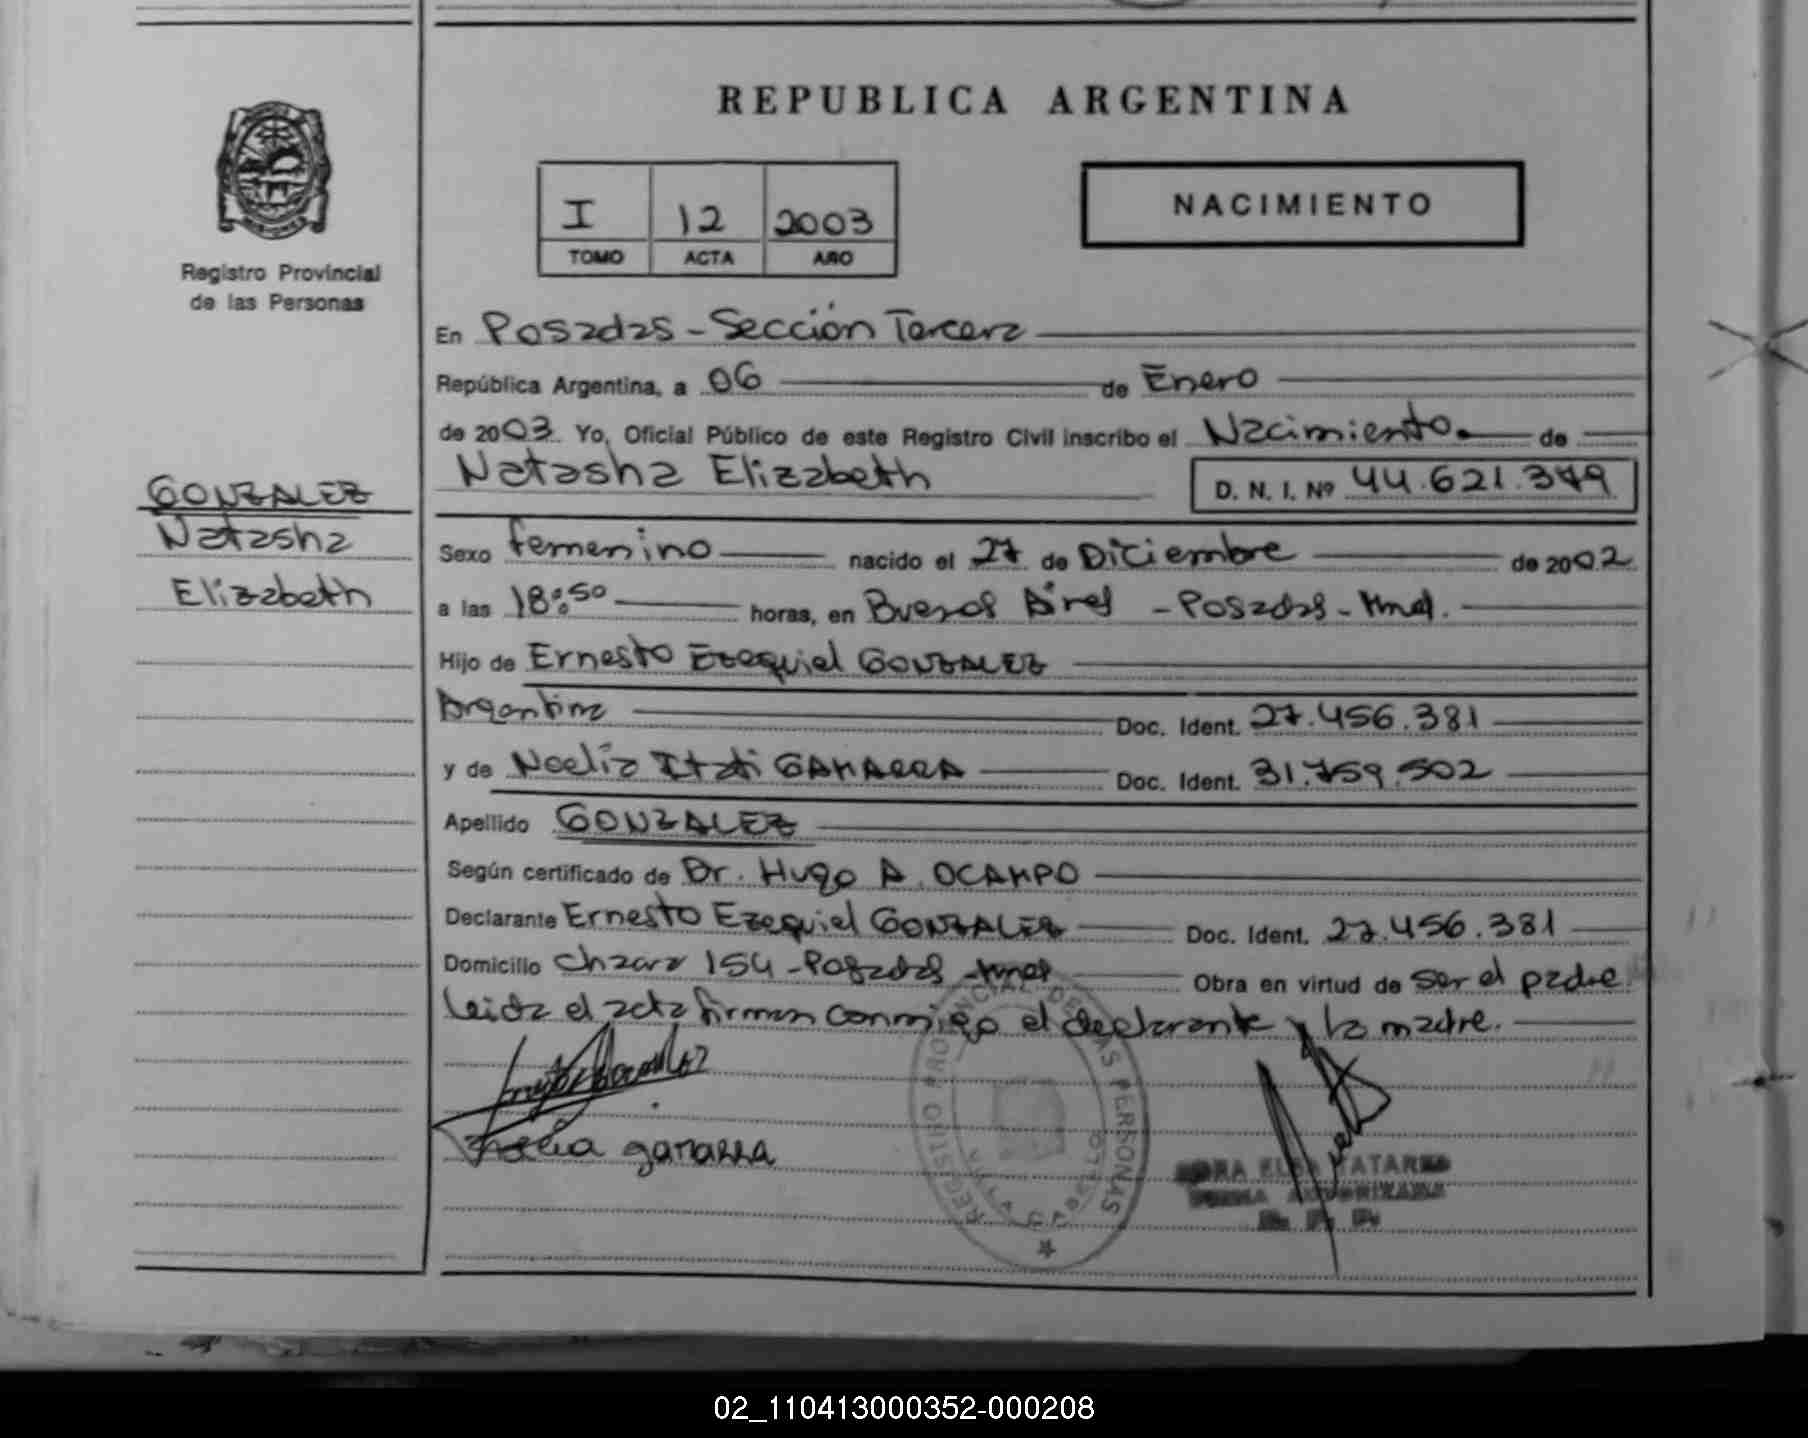 REPUBLICA ARGENTINA
I 12 2003
TOMO ACTA AÑO
NACIMIENTO
Registro Provincial
de las Personas
GONZALEZ
Natasha
Elizabeth
En Posadas - Sección Tercera
República Argentina, a 06 de Enero
de 2003 Yo, Oficial Público de este Registro Civil inscribo el Nacimiento. de
Natasha Elizabeth D. N. I. Nº 44.621.379
Sexo femenino nacido el 27 de Diciembre de 2002
a las 18:50 horas, en Buenos Aires - Posadas - Mnes.
Hijo de Ernesto Ezequiel GONZALEZ
Argentina Doc. Ident. 27.456.381
y de Noelia Itati GAMARRA Doc. Ident. 31.759.502
Apellido GONZALEZ
Según certificado de Dr. Hugo A. OCAMPO
Declarante Ernesto Ezequiel GONZALEZ Doc. Ident. 27.456.381
Domicilio Chacra 154 - Posadas - Mnes Obra en virtud de ser el padre.
Leida el acta firman conmigo el declarante y la madre.
Noelia gamarra
REGISTRO PROVINCIAL DE LAS PERSONAS
VILLA CABELLO
ELSA TATAREN
FIRMA AUTORIZADA
R. P. P.
02_110413000352-000208